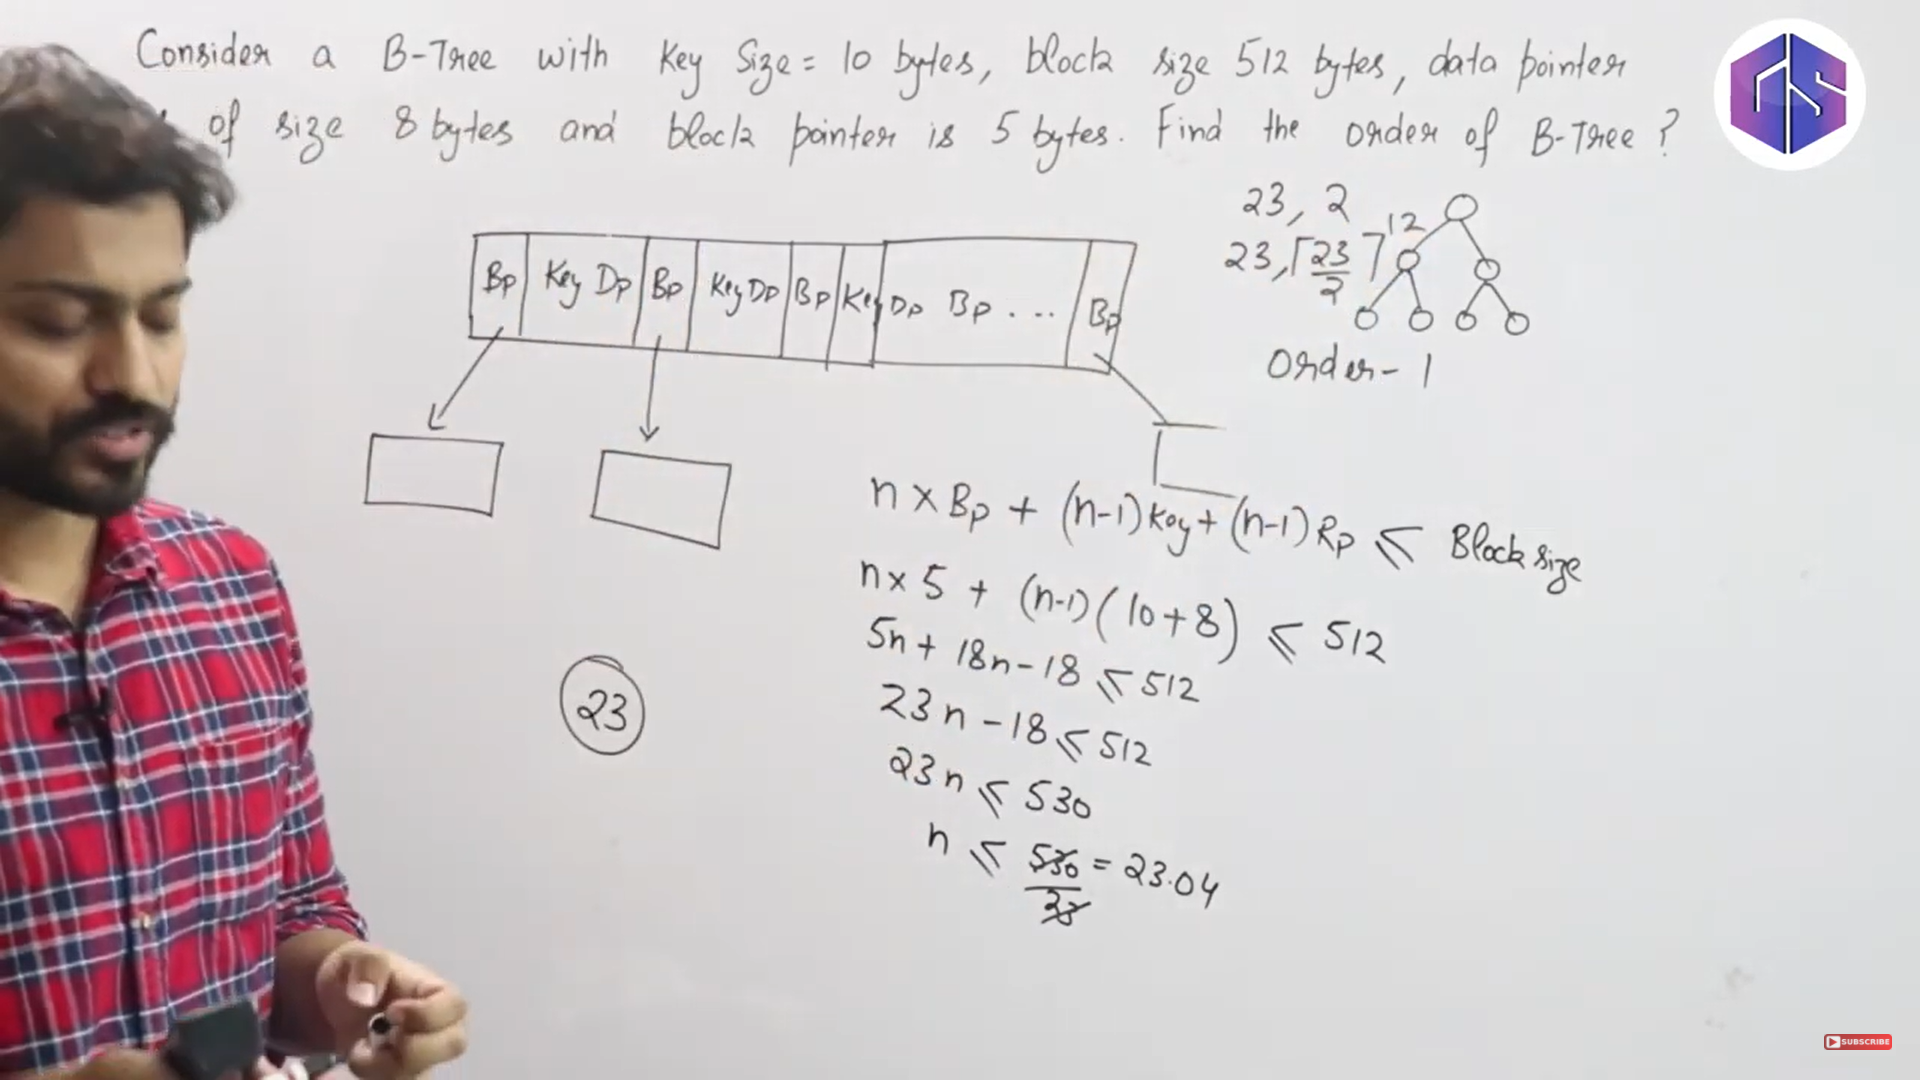 Consider a B-Tree with Key Size = 10 bytes, block size 512 bytes, data pointer
of size 8 bytes and block pointer is 5 bytes. Find the order of B-Tree ?
Bp Key Dp Bp Key Dp Bp Key Dp Bp ... Bp
23, 2
23, ⌈23/2⌉ 12
Order - 1
n × Bp + (n-1) Key + (n-1) Rp ≤ Block size
n × 5 + (n-1) (10+8) ≤ 512
5n + 18n - 18 ≤ 512
23n - 18 ≤ 512
23n ≤ 530
n ≤ 530/23 = 23.04
23
SUBSCRIBE